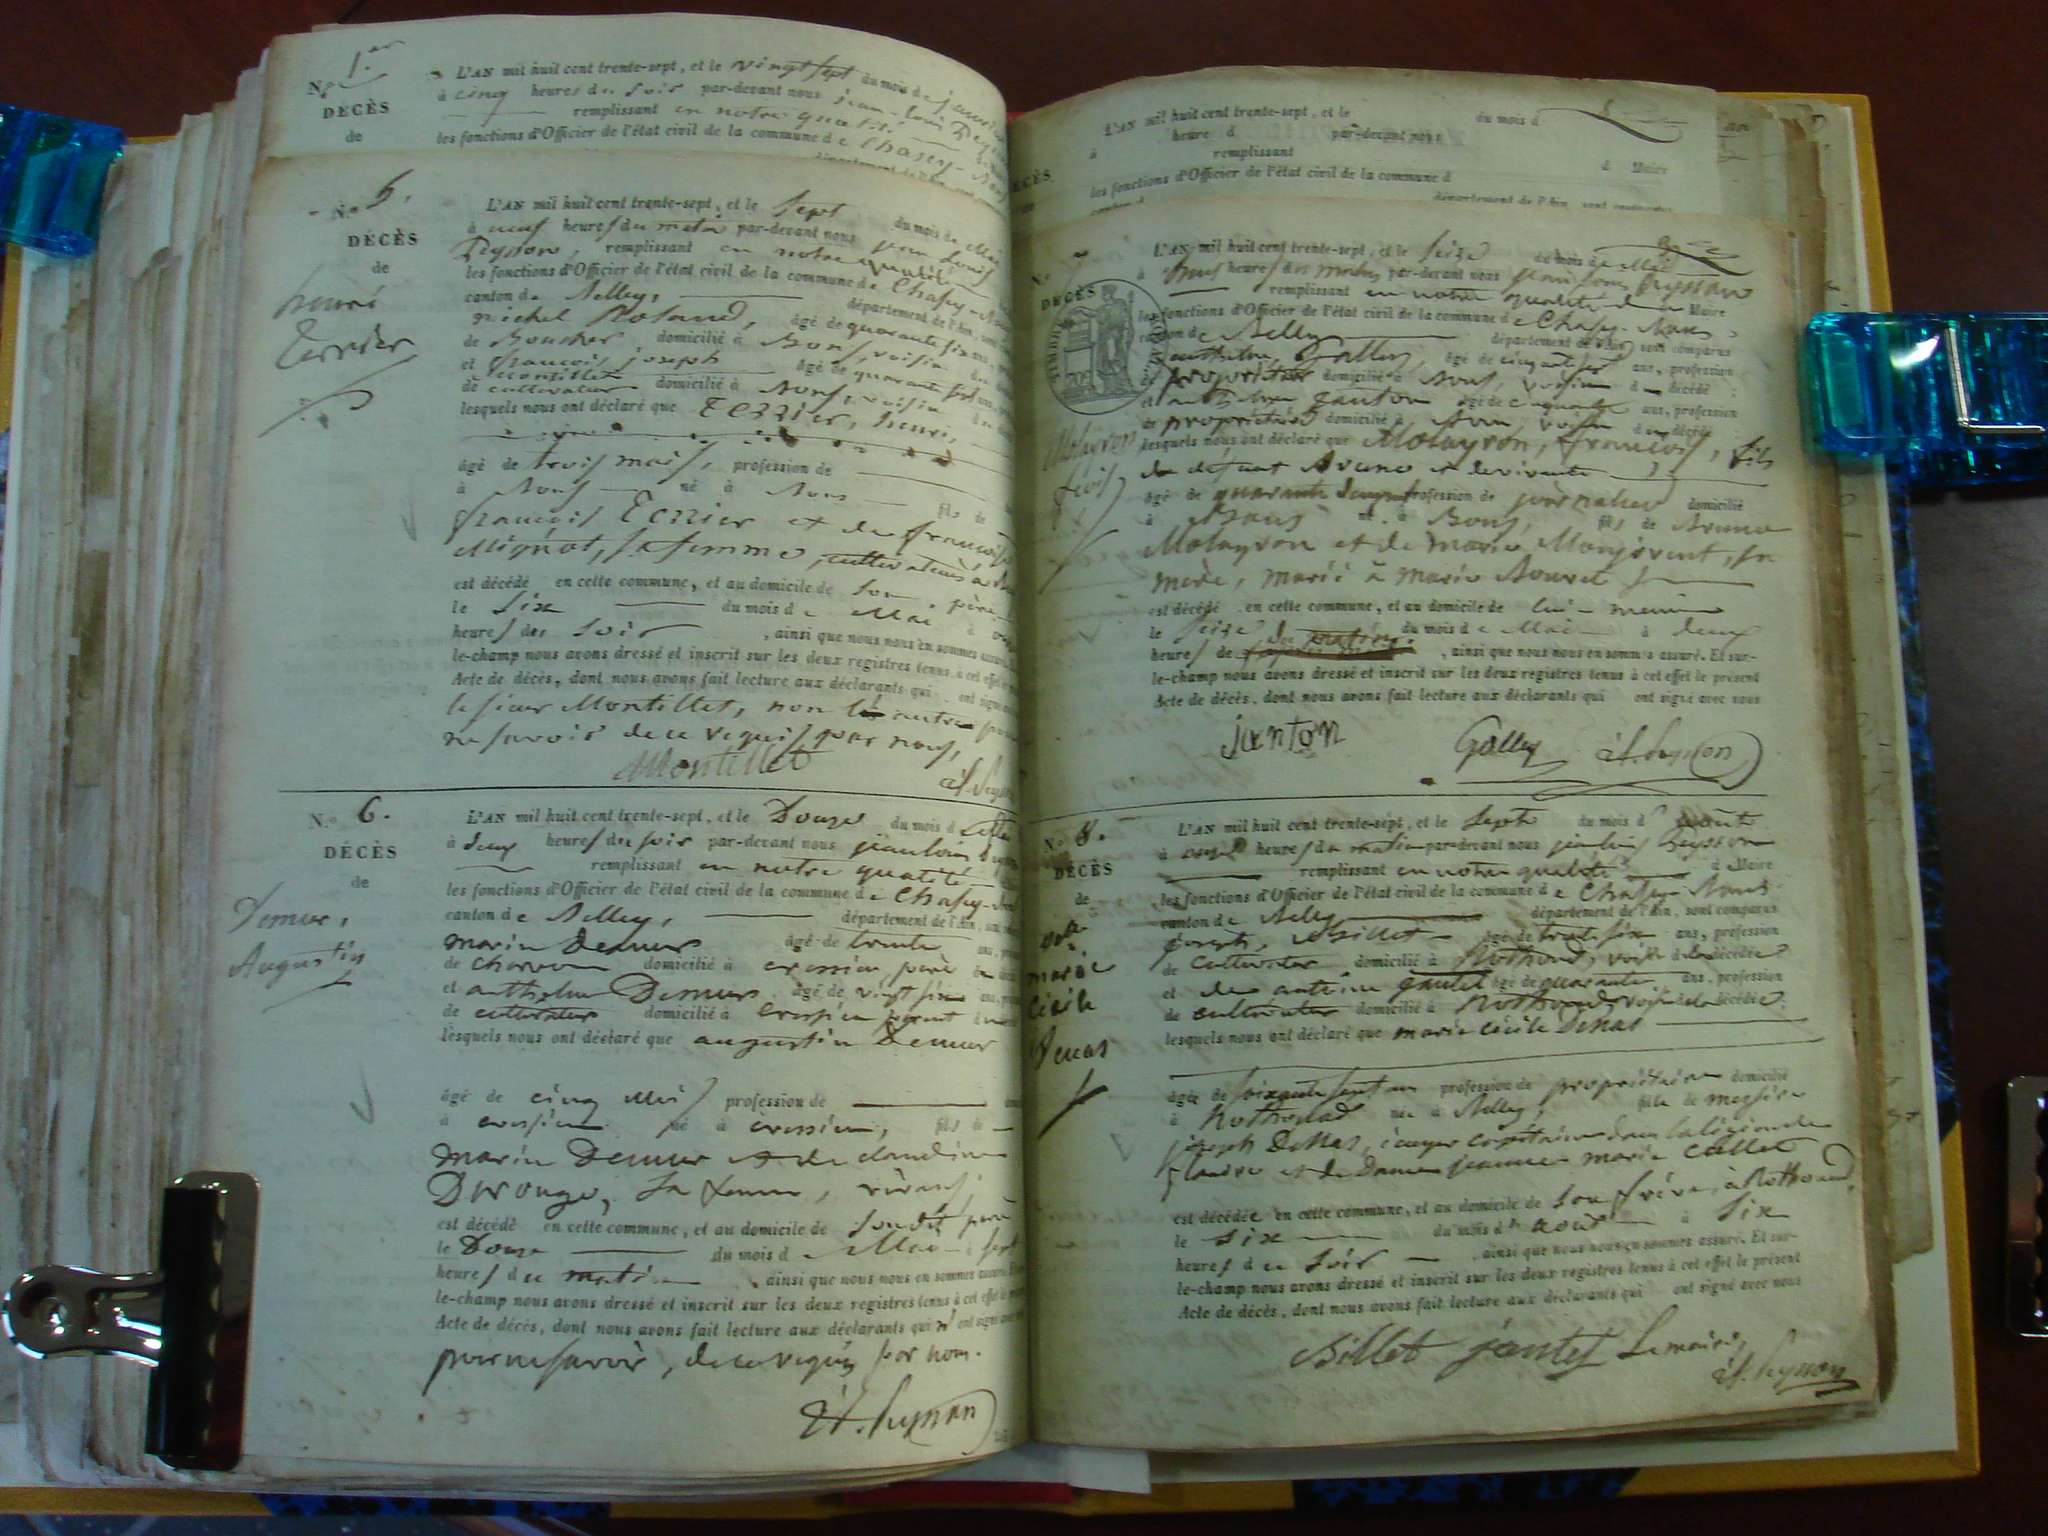 N.o 1.er
DÉCÈS
de
L'AN mil huit cent trente-sept, et le vingt sept du mois de janvier
à cinq heures du soir par-devant nous jean-louis
remplissant en notre qualité
les fonctions d'Officier de l'état civil de la commune de Chasey-Bons
N.o 5.
DÉCÈS
de
henri
Terrier
L'AN mil huit cent trente-sept, et le sept du mois de Mai
à neuf heures du matin par-devant nous jean louis
Peysson, remplissant en notre qualité
les fonctions d'Officier de l'état civil de la commune de Chasey-Bons
canton de Belley, département de l'Ain, sont
michel Roland, âgé de quarante six ans,
de Boucher, domicilié à Bons, voisin du
et françois joseph montillet âgé de quarante
de cultivateur domicilié à Bons, voisin
lesquels nous ont déclaré que Terrier, henri,
âgé de trois mois, profession de
à Bons né à Bons fils de
françois Terrier et de
Mignot, sa femme, cultivateurs à
est décédé en cette commune, et au domicile de son père
le Six du mois de Mai à
heures du Soir, ainsi que nous nous en sommes assuré.
le-champ nous avons dressé et inscrit sur les deux registres tenus à cet effet
Acte de décès, dont nous avons fait lecture aux déclarants qui ont signé
le sieur Montillet, non l'autre pour
ne savoir de ce requis par nous,
Montillet
N.o 6.
DÉCÈS
de
Demur,
Augustin
L'AN mil huit cent trente-sept, et le Douze du mois de Mai
à deux heures du soir par-devant nous jean louis
remplissant en notre qualité
les fonctions d'Officier de l'état civil de la commune de Chasey-Bons
canton de Belley, département de l'Ain,
marin Demur âgé de trente ans,
de charron domicilié à cressieu, père
et anthelme Demur, âgé de vingt six ans,
de cultivateur domicilié à Cressieu parent
lesquels nous ont déclaré que augustin Demur
âgé de cinq Mois profession de
à cressieu né à cressieu, fils de
marin Demur et de claudine
Durouge, sa femme, vivans,
est décédé en cette commune, et au domicile de Sondit père
le Douze du mois de Mai à sept
heures du matin, ainsi que nous nous en sommes assuré.
le-champ nous avons dressé et inscrit sur les deux registres tenus à cet effet le
Acte de décès, dont nous avons fait lecture aux déclarants qui n'ont signé
pour ne savoir, de ce requis par nous.
L'AN mil huit cent trente-sept, et le du mois d
à heure d par-devant nous
remplissant d Maire
les fonctions d'Officier de l'état civil de la commune d
département de l'Ain, sont comparus
N.o 7
DÉCÈS
TIMBRE
20
Molayron
L'AN mil huit cent trente-sept, et le Seize du mois de Mai
à heures du matin par-devant nous jean louis Peysson
remplissant en notre qualité de Maire
les fonctions d'Officier de l'état civil de la commune de Chasey-Bons
canton de Belley département de l'Ain, sont comparus
anthelme Galley, âgé de ans, profession
de propriétaire domicilié à Bons, voisin du décédé
et janton âgé de cinquante ans, profession
de propriétaire domicilié à Bons voisin du décédé
lesquels nous ont déclaré que Molayron, françois, fils
de défunt Bruno et de vivante
âgé de quarante profession de journalier domicilié
à Bons né à Bons, fils de Bruno
Molayron et de marie Monjovent, sa
mère, marié à marie Bouvet
est décédé en cette commune, et au domicile de lui-même
le Seize du mois de Mai à deux
heures du matin, ainsi que nous nous en sommes assuré. Et sur-
le-champ nous avons dressé et inscrit sur les deux registres tenus à cet effet le présent
Acte de décès, dont nous avons fait lecture aux déclarants qui ont signé avec nous
janton Galley
N.o 8.
DÉCÈS
de
marie
Cécile
Denas
L'AN mil huit cent trente-sept, et le Sept du mois d'août
à heures du matin par-devant nous jean louis Peysson
remplissant en notre qualité d Maire
les fonctions d'Officier de l'état civil de la commune de Chasey-Bons
canton de Belley département de l'Ain, sont comparus
joseph, Billet âgé de trente six ans, profession
de cultivateur domicilié à Rothonod, voisin de la décédée
et de antoine jantet âgé de quarante ans, profession
de cultivateur domicilié à Rothonod voisin de la décédée
lesquels nous ont déclaré que marie cécile Denas
âgée de soixante sept ans profession de propriétaire domicilié
à Rothonod née à Belley, fille de messire
joseph Denas, écuyer capitaine dans la légion de
flandre et de Dame jeanne marie Callet
est décédée en cette commune, et au domicile de Son frère, à Rothonod,
le six du mois d'août à Six
heures du Soir, ainsi que nous nous en sommes assuré. Et sur-
le-champ nous avons dressé et inscrit sur les deux registres tenus à cet effet le présent
Acte de décès, dont nous avons fait lecture aux déclarants qui ont signé avec nous
Billet jantet Le maire,